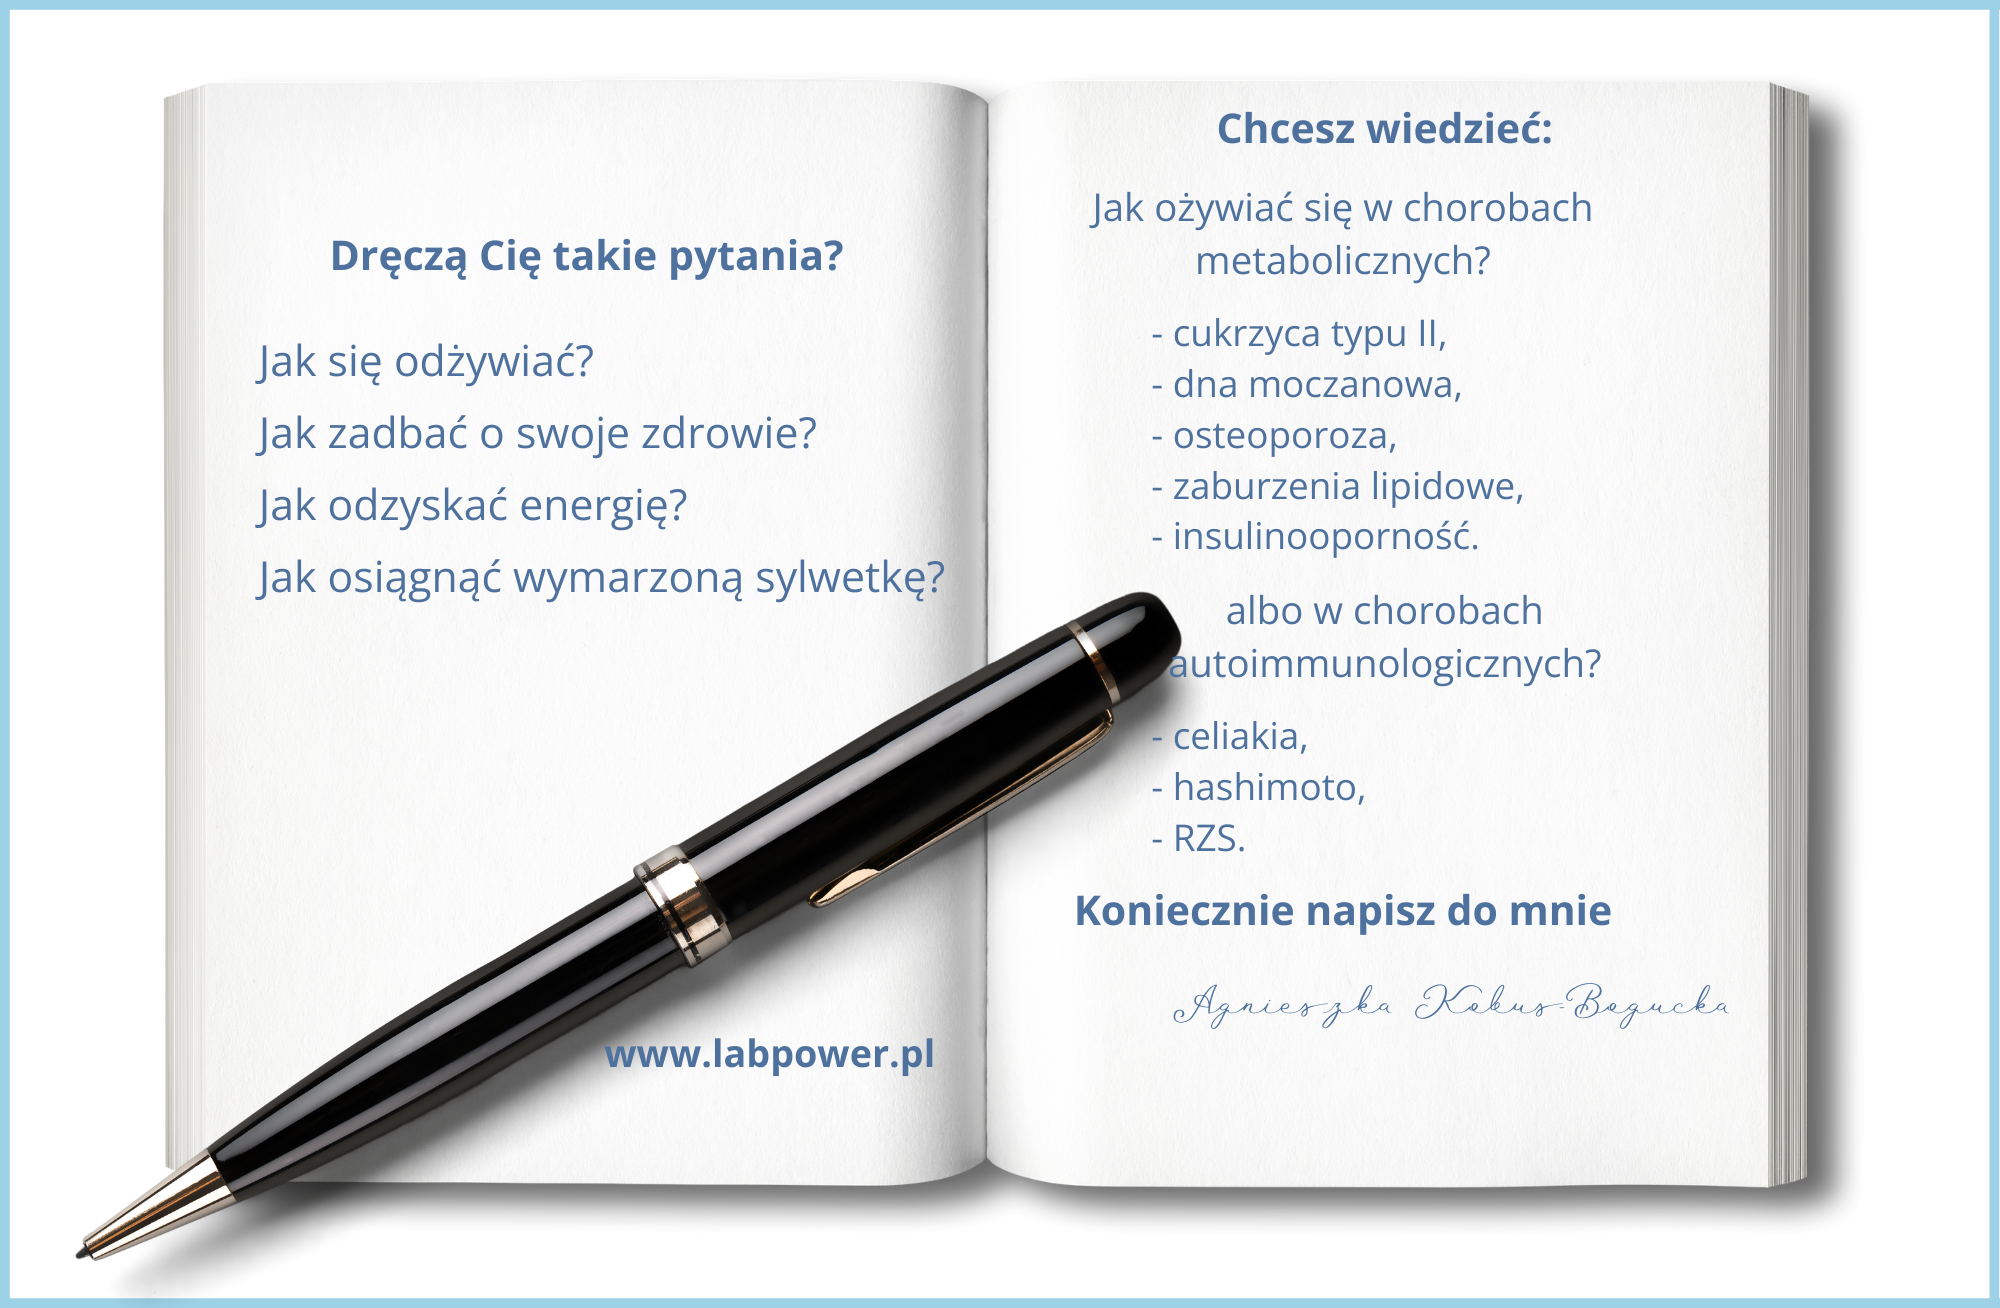 Dręczą Cię takie pytania?
Jak się odżywiać?
Jak zadbać o swoje zdrowie?
Jak odzyskać energię?
Jak osiągnąć wymarzoną sylwetkę?
www.labpower.pl
Chcesz wiedzieć:
Jak ożywiać się w chorobach
metabolicznych?
- cukrzyca typu II,
- dna moczanowa,
- osteoporoza,
- zaburzenia lipidowe,
- insulinooporność.
albo w chorobach
autoimmunologicznych?
- celiakia,
- hashimoto,
- RZS.
Koniecznie napisz do mnie
Agnieszka Kobus-Bogucka